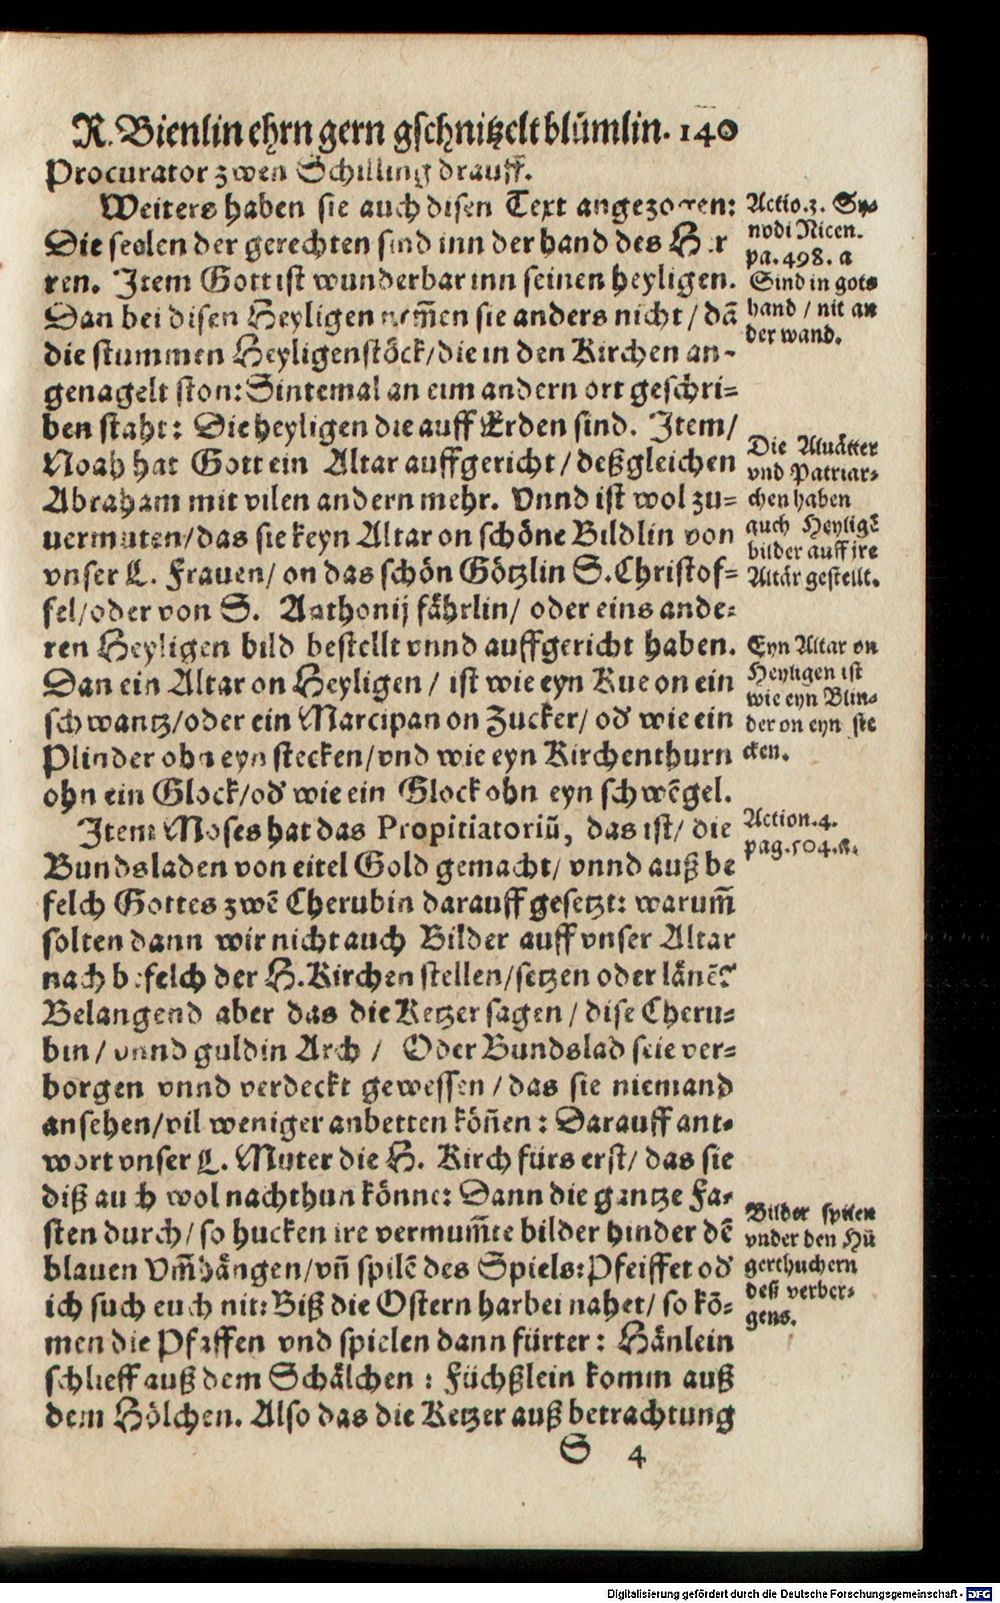 R. Bienlin ehrn gern gschnitzelt blümlin. 140
Procurator zwen Schilling drauff.
Weiters haben sie auch disen Text angezogen:
Die seelen der gerechten sind inn der hand des Her
ren. Item Gott ist wunderbar inn seinen heyligen.
Dan bei disen Heyligen nem̃en sie anders nicht / dañ
die stummen Heyligenstöck/die in den Kirchen an-
genagelt ston: Sintemal an eim andern ort geschri-
ben staht: Die heyligen die auff Erden sind. Item/
Noah hat Gott ein Altar auffgericht / deßgleichen
Abraham mit vilen andern mehr. Vnnd ist wol zu-
uermuten/das sie keyn Altar on schöne Bildlin von
vnser L. Frauen/ on das schön Götzlin S. Christof-
fel/oder von S. Anthonij fährlin/ oder eins ande-
ren Heyligen bild bestellt vnnd auffgericht haben.
Dan ein Altar on Heyligen / ist wie eyn Kue on ein
schwantz/oder ein Marcipan on Zucker/ od' wie ein
Plinder ohn eyn stecken/vnd wie eyn Kirchenthurn
ohn ein Glock/od' wie ein Glock ohn eyn schwēgel.
Item Moses hat das Propitiatoriū, das ist/ die
Bundsladen von eitel Gold gemacht/ vnnd auß be
felch Gottes zwē Cherubin darauff gesetzt: warum̃
solten dann wir nicht auch Bilder auff vnser Altar
nach befelch der H. Kirchen stellen/setzen oder länē?
Belangend aber das die Ketzer sagen / dise Cheru-
bin / vnnd guldin Arch / Oder Bundslad seie ver-
borgen vnnd verdeckt gewessen / das sie niemand
ansehen/vil weniger anbetten köñen : Darauff ant-
wort vnser L. Muter die H. Kirch fürs erst/ das sie
diß auch wol nachthun könne: Dann die gantze Fa-
sten durch/ so hucken ire vermum̃te bilder hinder dē
blauen Vm̃hängen/vñ spilē des Spiels: Pfeiffet od'
ich such euch nit: Biß die Ostern harbei nahet/ so kō-
men die Pfaffen vnd spielen dann fürter : Hänlein
schlieff auß dem Schälchen : Füchßlein komm auß
dem Hölchen. Also das die Ketzer auß betrachtung
S 4
Actio.3. Sy-
nodi Nicen.
pa. 498. a
Sind in gots
hand / nit an
der wand.
Die Altuätter
vnd Patriar-
chen haben
auch Heyligē
bilder auff jre
Altär gestellt.
Eyn Altar on
Heyligen ist
wie eyn Blin-
der on eyn ste
cken.
Action.4.
pag.504.a.
Bilder spilen
vnder den Hū
gerthuchern
deß verber-
gens.
Digitalisierung gefördert durch die Deutsche Forschungsgemeinschaft - DFG